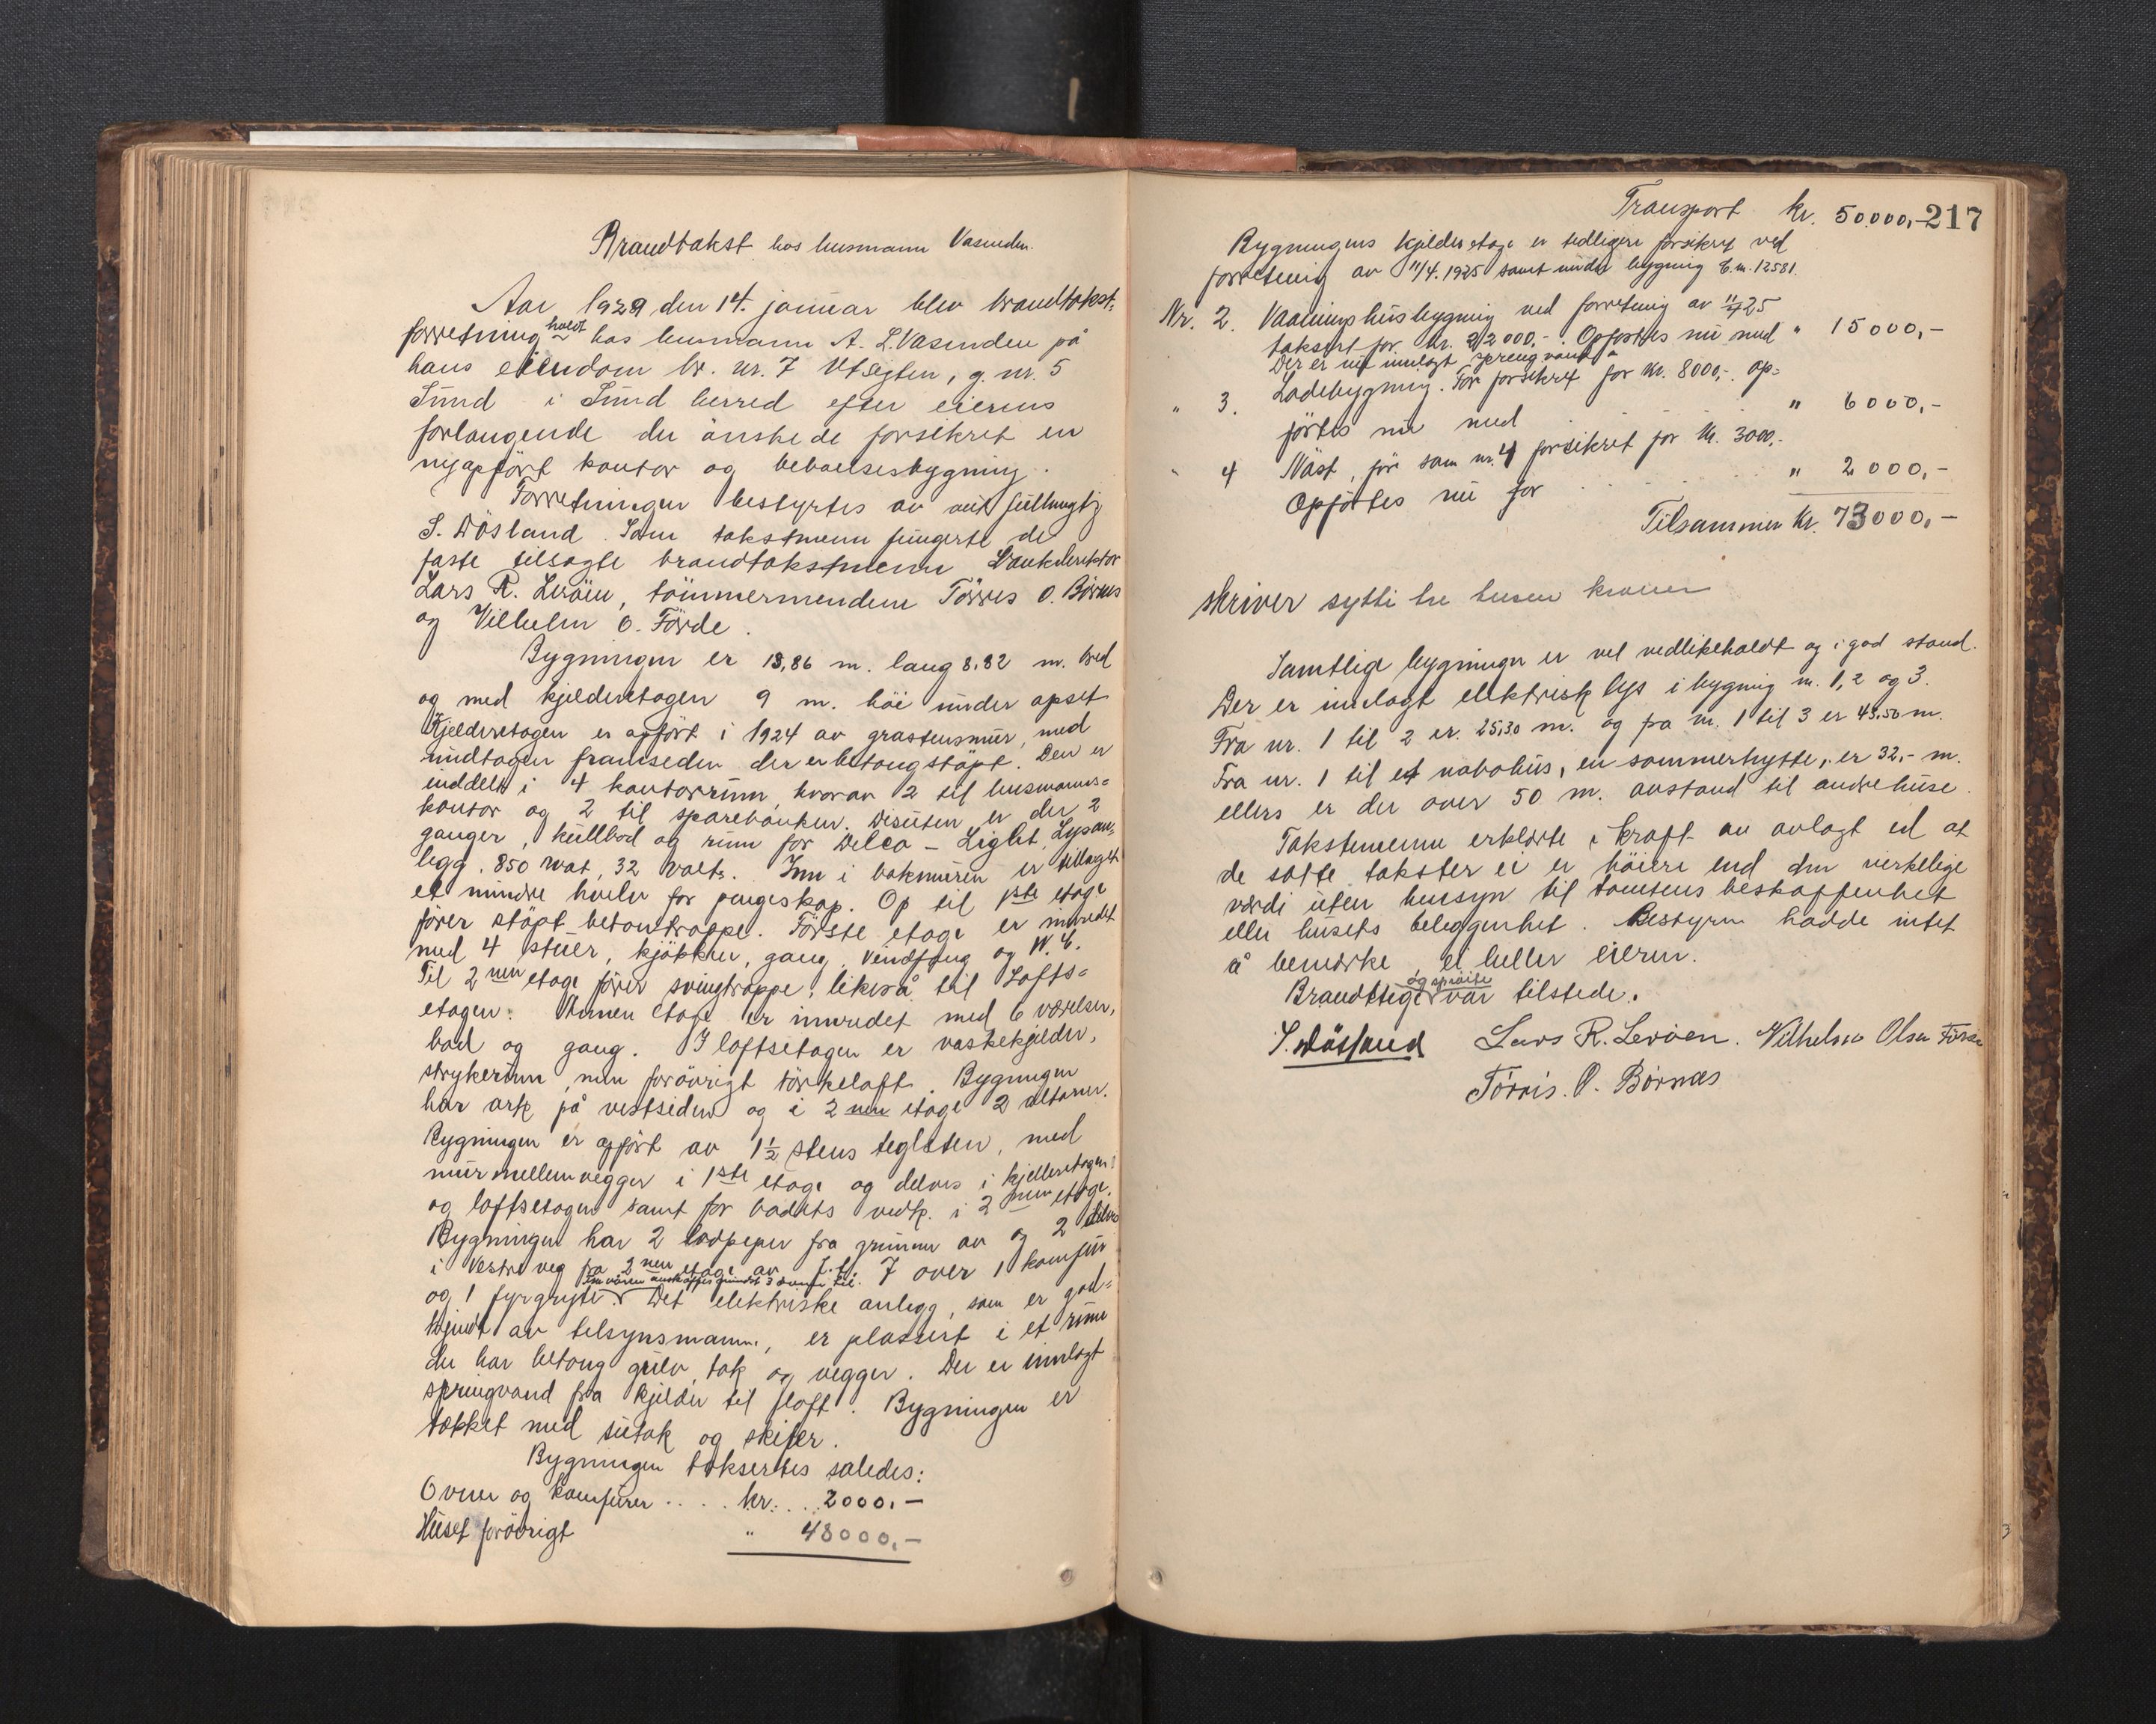 Brandtakst hos lensmann Vasenden.
Aar 1929 den 14. januar blev brandtakst-
forretning holdt hos lensmann A. L. Vasenden på
hans eiendom br. nr. 7 Utsigten, g. nr. 5
Sund i Sund herred efter eierens
forlangende der ønskede forsikret en
nyopført kontor og beboelsesbygning.
Forretningen bestyrtes av aut. fullmegtig
S. Døsland. Som takstmenn fungerte de
faste tilsagte brandtakstmenn Bankdirektør
Lars R. Lerøen, tømmermendene Tørres O. Børnes
og Vilhelm O. Førde.
Bygningen er 13,86 m. lang 8,82 m. bred
og med kjelderetagen 9 m. høi under opset
Kjelderetagen er opført i 1924 av grastensmur, med
undtagen framsiden der er betongstøpt. Den er
inddelt i 4 kontorrum, hvorav 2 til lensmanns=
kontor og 2 til sparebanken. Desuten er der 2
ganger, kullbod og rum for Delco - Light Lysan=
legg. 850 wat, 32 volts. Inn i bakmuren er tillaget
et mindre hvelv for pengeskap. Op til 1ste etage
fører støpt betontrappe. Første etage er innredet
med 4 stuer, kjøkken, gang, vindfang og W.C.
Til 2nen etage fører svingtrappe, likeså til Lofts=
etagen. Annen etage er innredet med 6 værelser,
bad og gang. I loftsetagen er vaskekjelder,
strykerum, men forøvrigt tørkeloft. Bygningen
har ark på vestsiden og i 2nen etage 2 altaner.
Bygningen er opført av 1½ stens teglsten, med
mur mellemvegger i 1ste etage og delvis i kjelleretagen
og loftsetagen samt for badets vedk. i 2nen etage.
Bygningen har 2 lodpeper fra grunnen av og 2
i vestre veg fra 2nen etage av f.t. 7 over 1 komfur
og 1 fyrgryte. Det elektriske anlegg, som er god=
kjendt av tilsynsmann, er plassert i et rum
der har betong gulv, tak og vegger. Der er innlagt
springvand fra kjelder til loft. Bygningen er
tekket med sutak og skifer.
Bygningen taksertes således:
Ovner og komfurer .... kr. .. 2000,-
Huset forøvrigt " 48000,-
Transport kr. 50.000,- 217
Bygningens kjelderetage er tidligere forsikret ved
forretning av 11/4.1925 samt under bygning C.nr. 12581.
Nr. 2. Vaaningshusbygning ved forretning av 11/4 25
taksert for kr. 22000,-. Opførtes nu med " 15000,-
Der er nu innlagt spreng vand
" 3. Ladebygning. Før forsikret for kr. 8000,-. Op=
førtes nu med " 6000,-
" 4 Nøst, før som nr. 4 forsikret for kr. 3000,-
Opførtes nu for " 2000,-
Tilsammen kr. 73000,-
skriver sytti tre tusen kroner
Samtlige bygninger er vel vedlikeholdt og i god stand.
Der er innlagt elektrisk lys i bygning nr. 1, 2 og 3.
Fra nr. 1 til 2 er 25,30 m. og fra nr. 1 til 3 er 43.50 m.
Fra nr. 1 til et nabohus, en sommerhytte, er 32,- m.
ellers er der over 50 m. avstand til andre huse.
Takstmenn erklærte i kraft av avlagt ed at
de satte takster ei er høiere end den virkelige
værdi uten hensyn til tomtens beskaffenhet
eller husets beleggenhet. Bestyrer hadde intet
å bemerke, ei heller eieren.
Brandstige og sprøite var tilstede.
S. Døsland Lars R. Lerøen. Vilhelm Olsen Førde
Tørris. O. Børnes